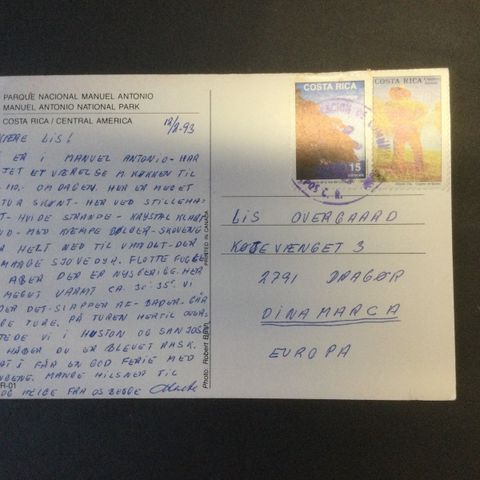 PARQUE NACIONAL MANUEL ANTONIO
MANUEL ANTONIO NATIONAL PARK
COSTA RICA / CENTRAL AMERICA
12/2-93
KÆRE LIS!
ER I MANUEL ANTONIO-HAR
ET VÆRELSE M KØKKEN TIL
10. OM DAGEN. HER ER MEGET
SKØNT- HER VED STILLEHA
HVIDE STRANDE- KRYSTAL KLART
MED KÆMPE BØLGER- SKOVENE
HELT NED TIL VANDET-DER
MANGE SJOVE DYR. FLOTTE FUGLE
ABER DER ER NYSGERIGE. HER
MEGET VARMT CA 30-35°. VI
DET-SLAPPER AF-BADER. GÅR
TURE. PÅ TUREN HERTIL OVER
TEDE VI I HUSTON OG SAN JOSE
HÅBER DU ER BLEVET RASK.
I FÅR EN GOD FERIE MED
MANGE HILSNER TIL
OG HELGE FRA OS BEGGE
R-01
PRINTED IN CANADA
Photo: Robert
COSTA RICA
15
COSTA RICA
LIS OVERGAARD
KØJEVÆNGET 3
2791 DRAGØR
DINAMARCA
EUROPA